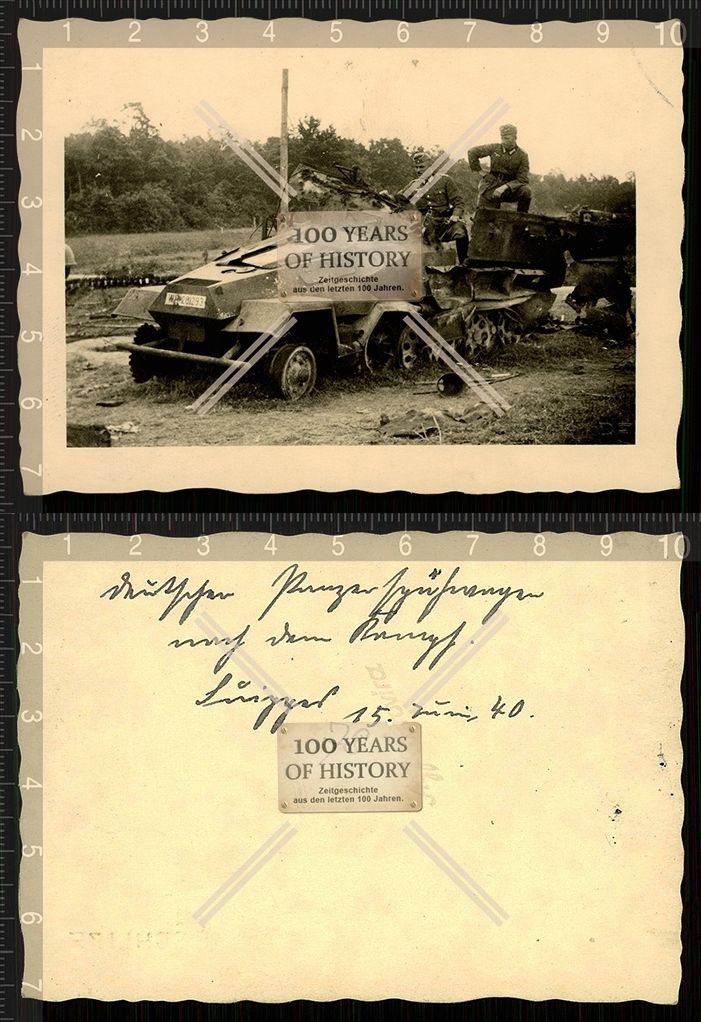 1 2 3 4 5 6 7 8 9 10
1
2
3
4
5
6
7
100 YEARS
OF HISTORY
Zeitgeschichte
aus den letzten 100 Jahren.
1 2 3 4 5 6 7 8 9 10
1
2
3
4
5
6
7
deutscher Panzerspähwagen
nach dem Kampf.
15. Juni 40.
100 YEARS
OF HISTORY
Zeitgeschichte
aus den letzten 100 Jahren.